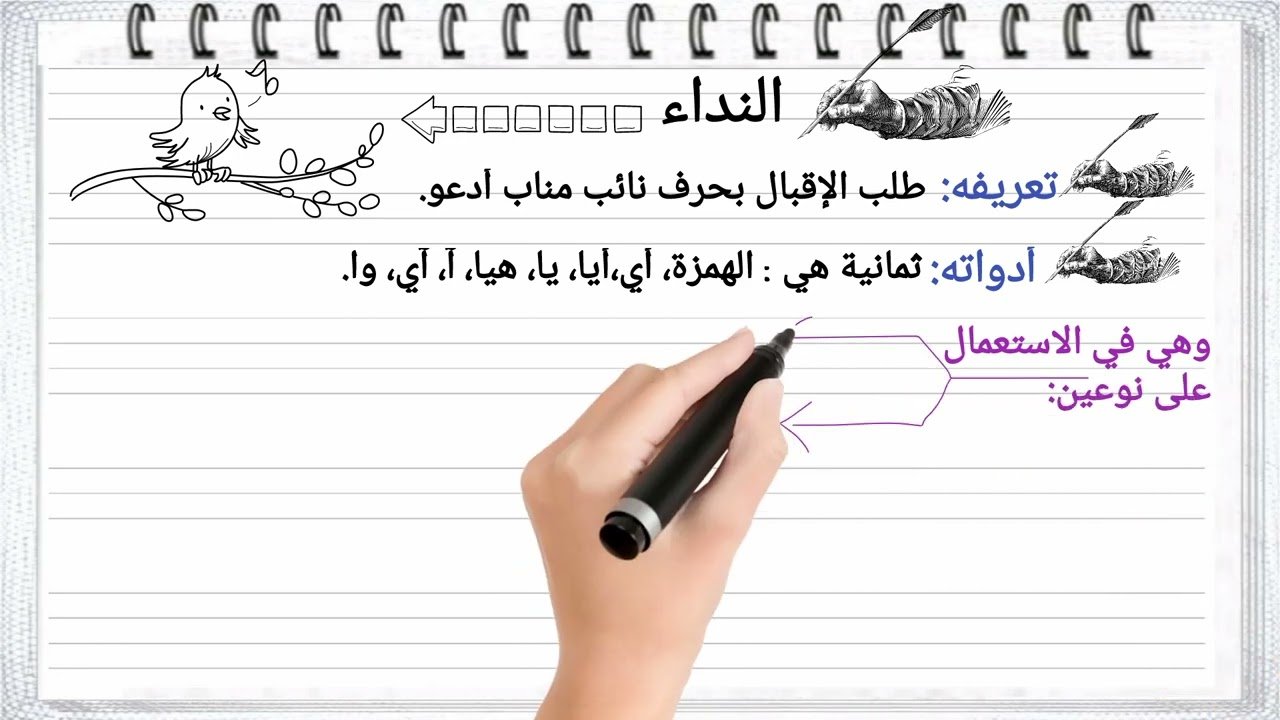 النداء
تعريفه: طلب الإقبال بحرف نائب مناب أدعو.
أدواته: ثمانية هي : الهمزة، أي،أيا، يا، هيا، آ، آي، وا.
وهي في الاستعمال
على نوعين: